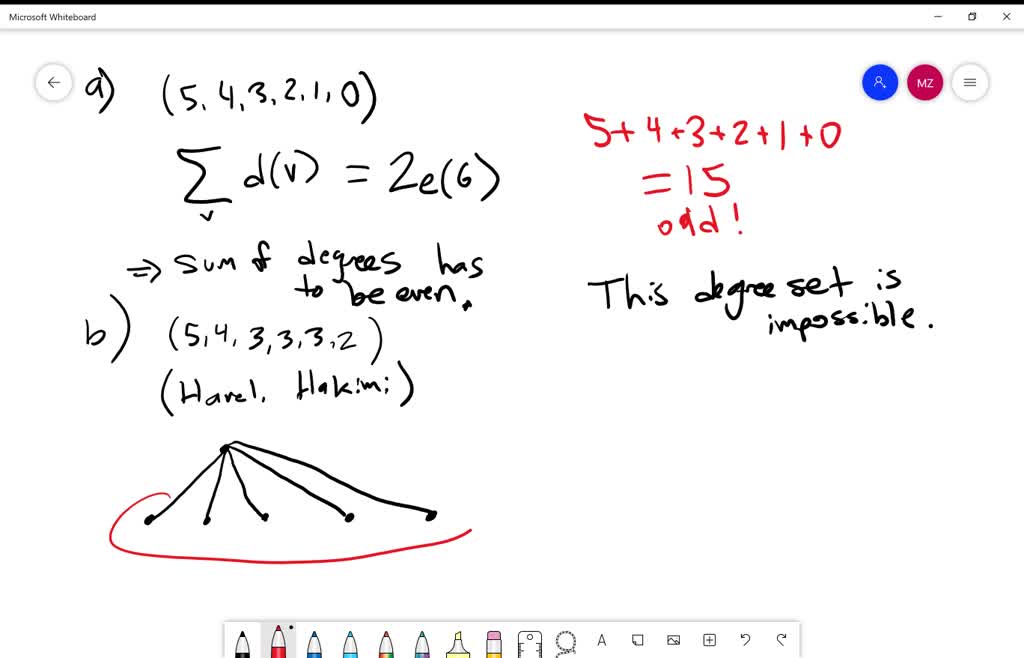 Microsoft Whiteboard
a) (5, 4, 3, 2, 1, 0)
MZ
5+4+3+2+1+0
∑ d(v) = 2e(G)
v
=15
odd!
⇒ sum of degrees has
to be even.
This degree set is
impossible.
b) (5, 4, 3, 3, 3, 2)
(Havel, Hakimi)
A